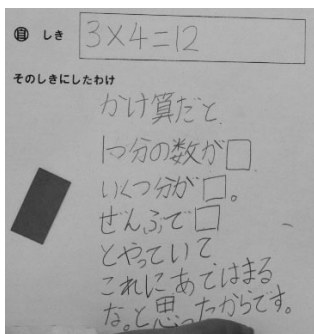 目 しき 3×4=12
そのしきにしたわけ
かけ算だと、
1つ分の数が□
いくつ分が□。
ぜんぶで□
とやっていて
これにあてはまる
な。と思ったからです。